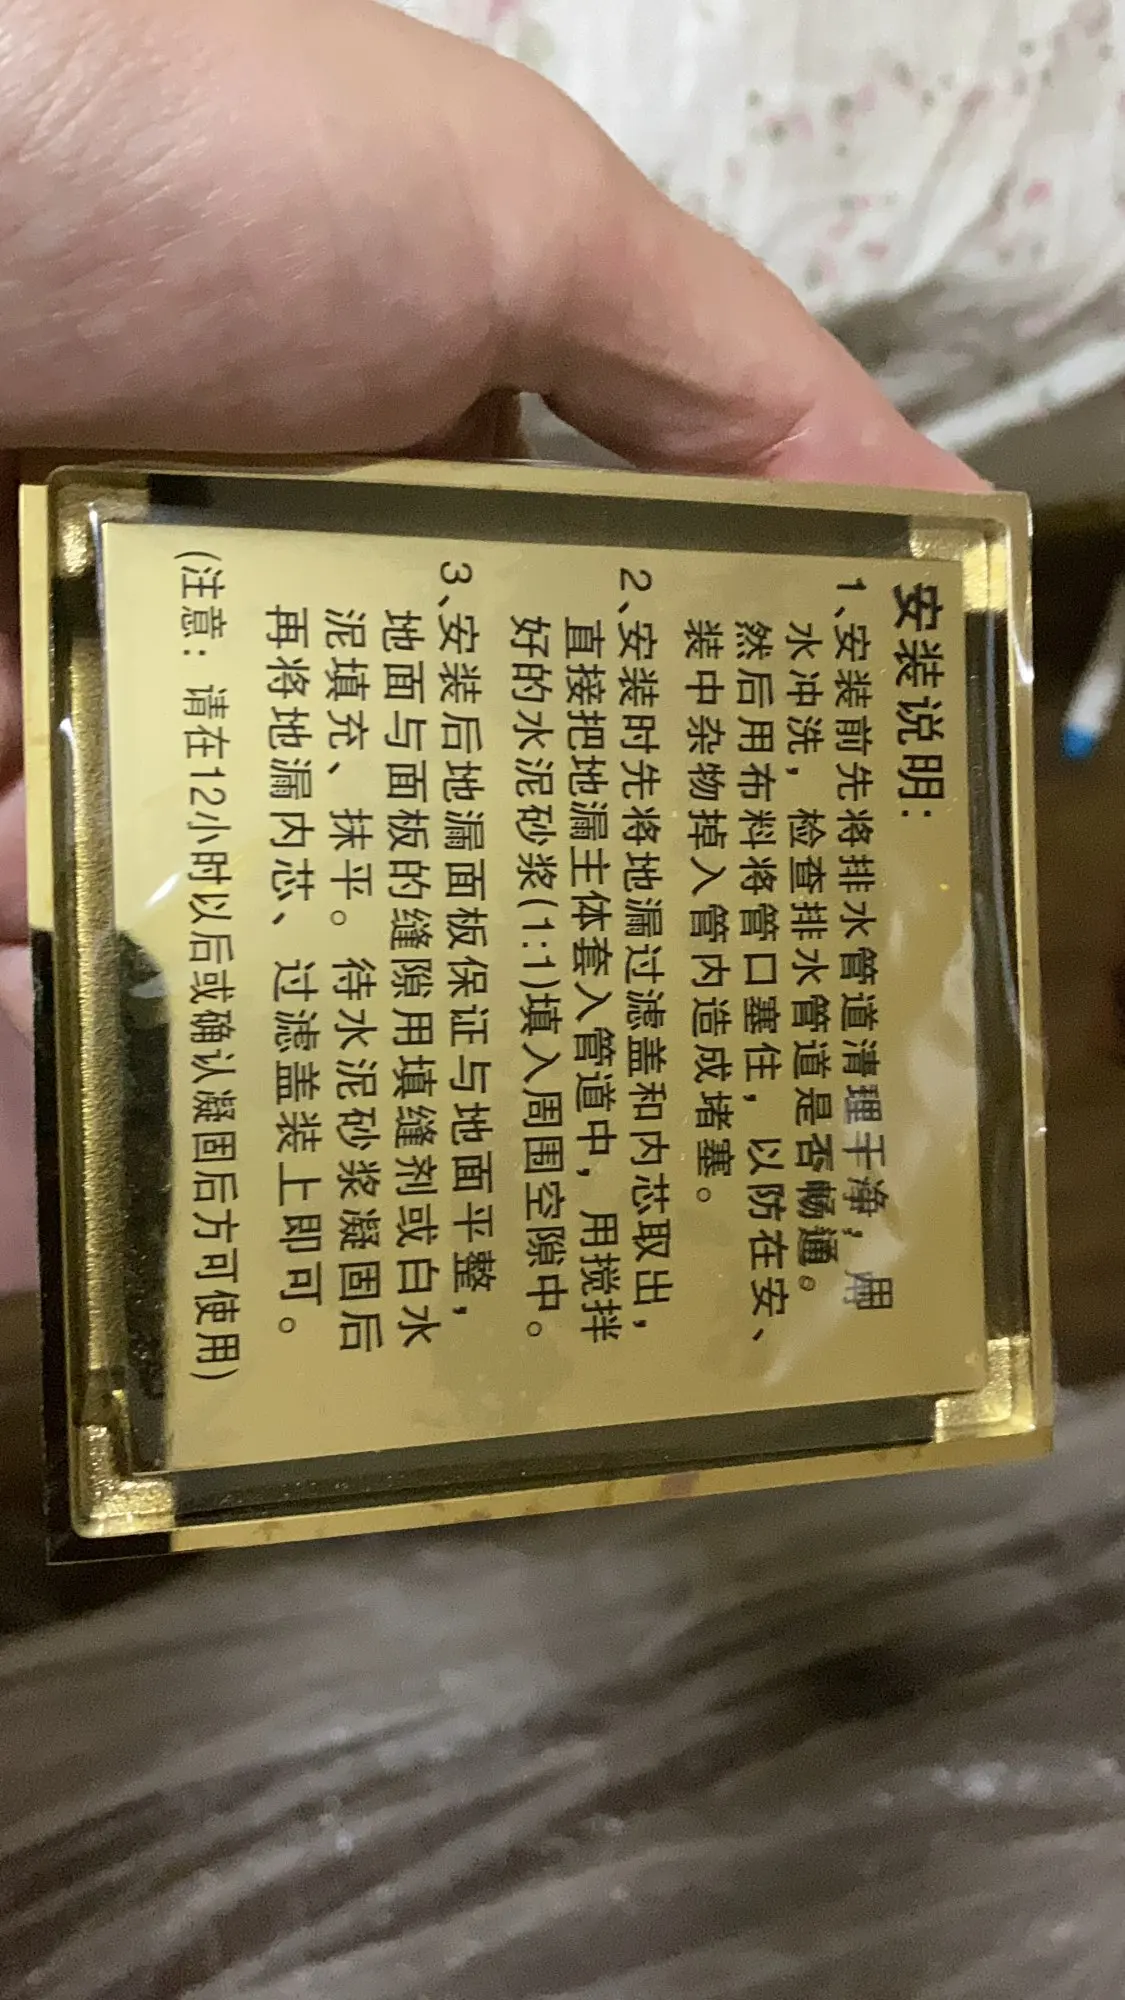 安装说明：
1、安装前先将排水管道清理干净，用
水冲洗，检查排水管道是否畅通。
然后用布料将管口塞住，以防在安、
装中杂物掉入管内造成堵塞。
2、安装时先将地漏过滤盖和内芯取出，
直接把地漏主体套入管道中，用搅拌
好的水泥砂浆(1:1)填入周围空隙中。
3、安装后地漏面板保证与地面平整，
地面与面板的缝隙用填缝剂或白水
泥填充、抹平。待水泥砂浆凝固后
再将地漏内芯、过滤盖装上即可。
(注意：请在12小时以后或确认凝固后方可使用)